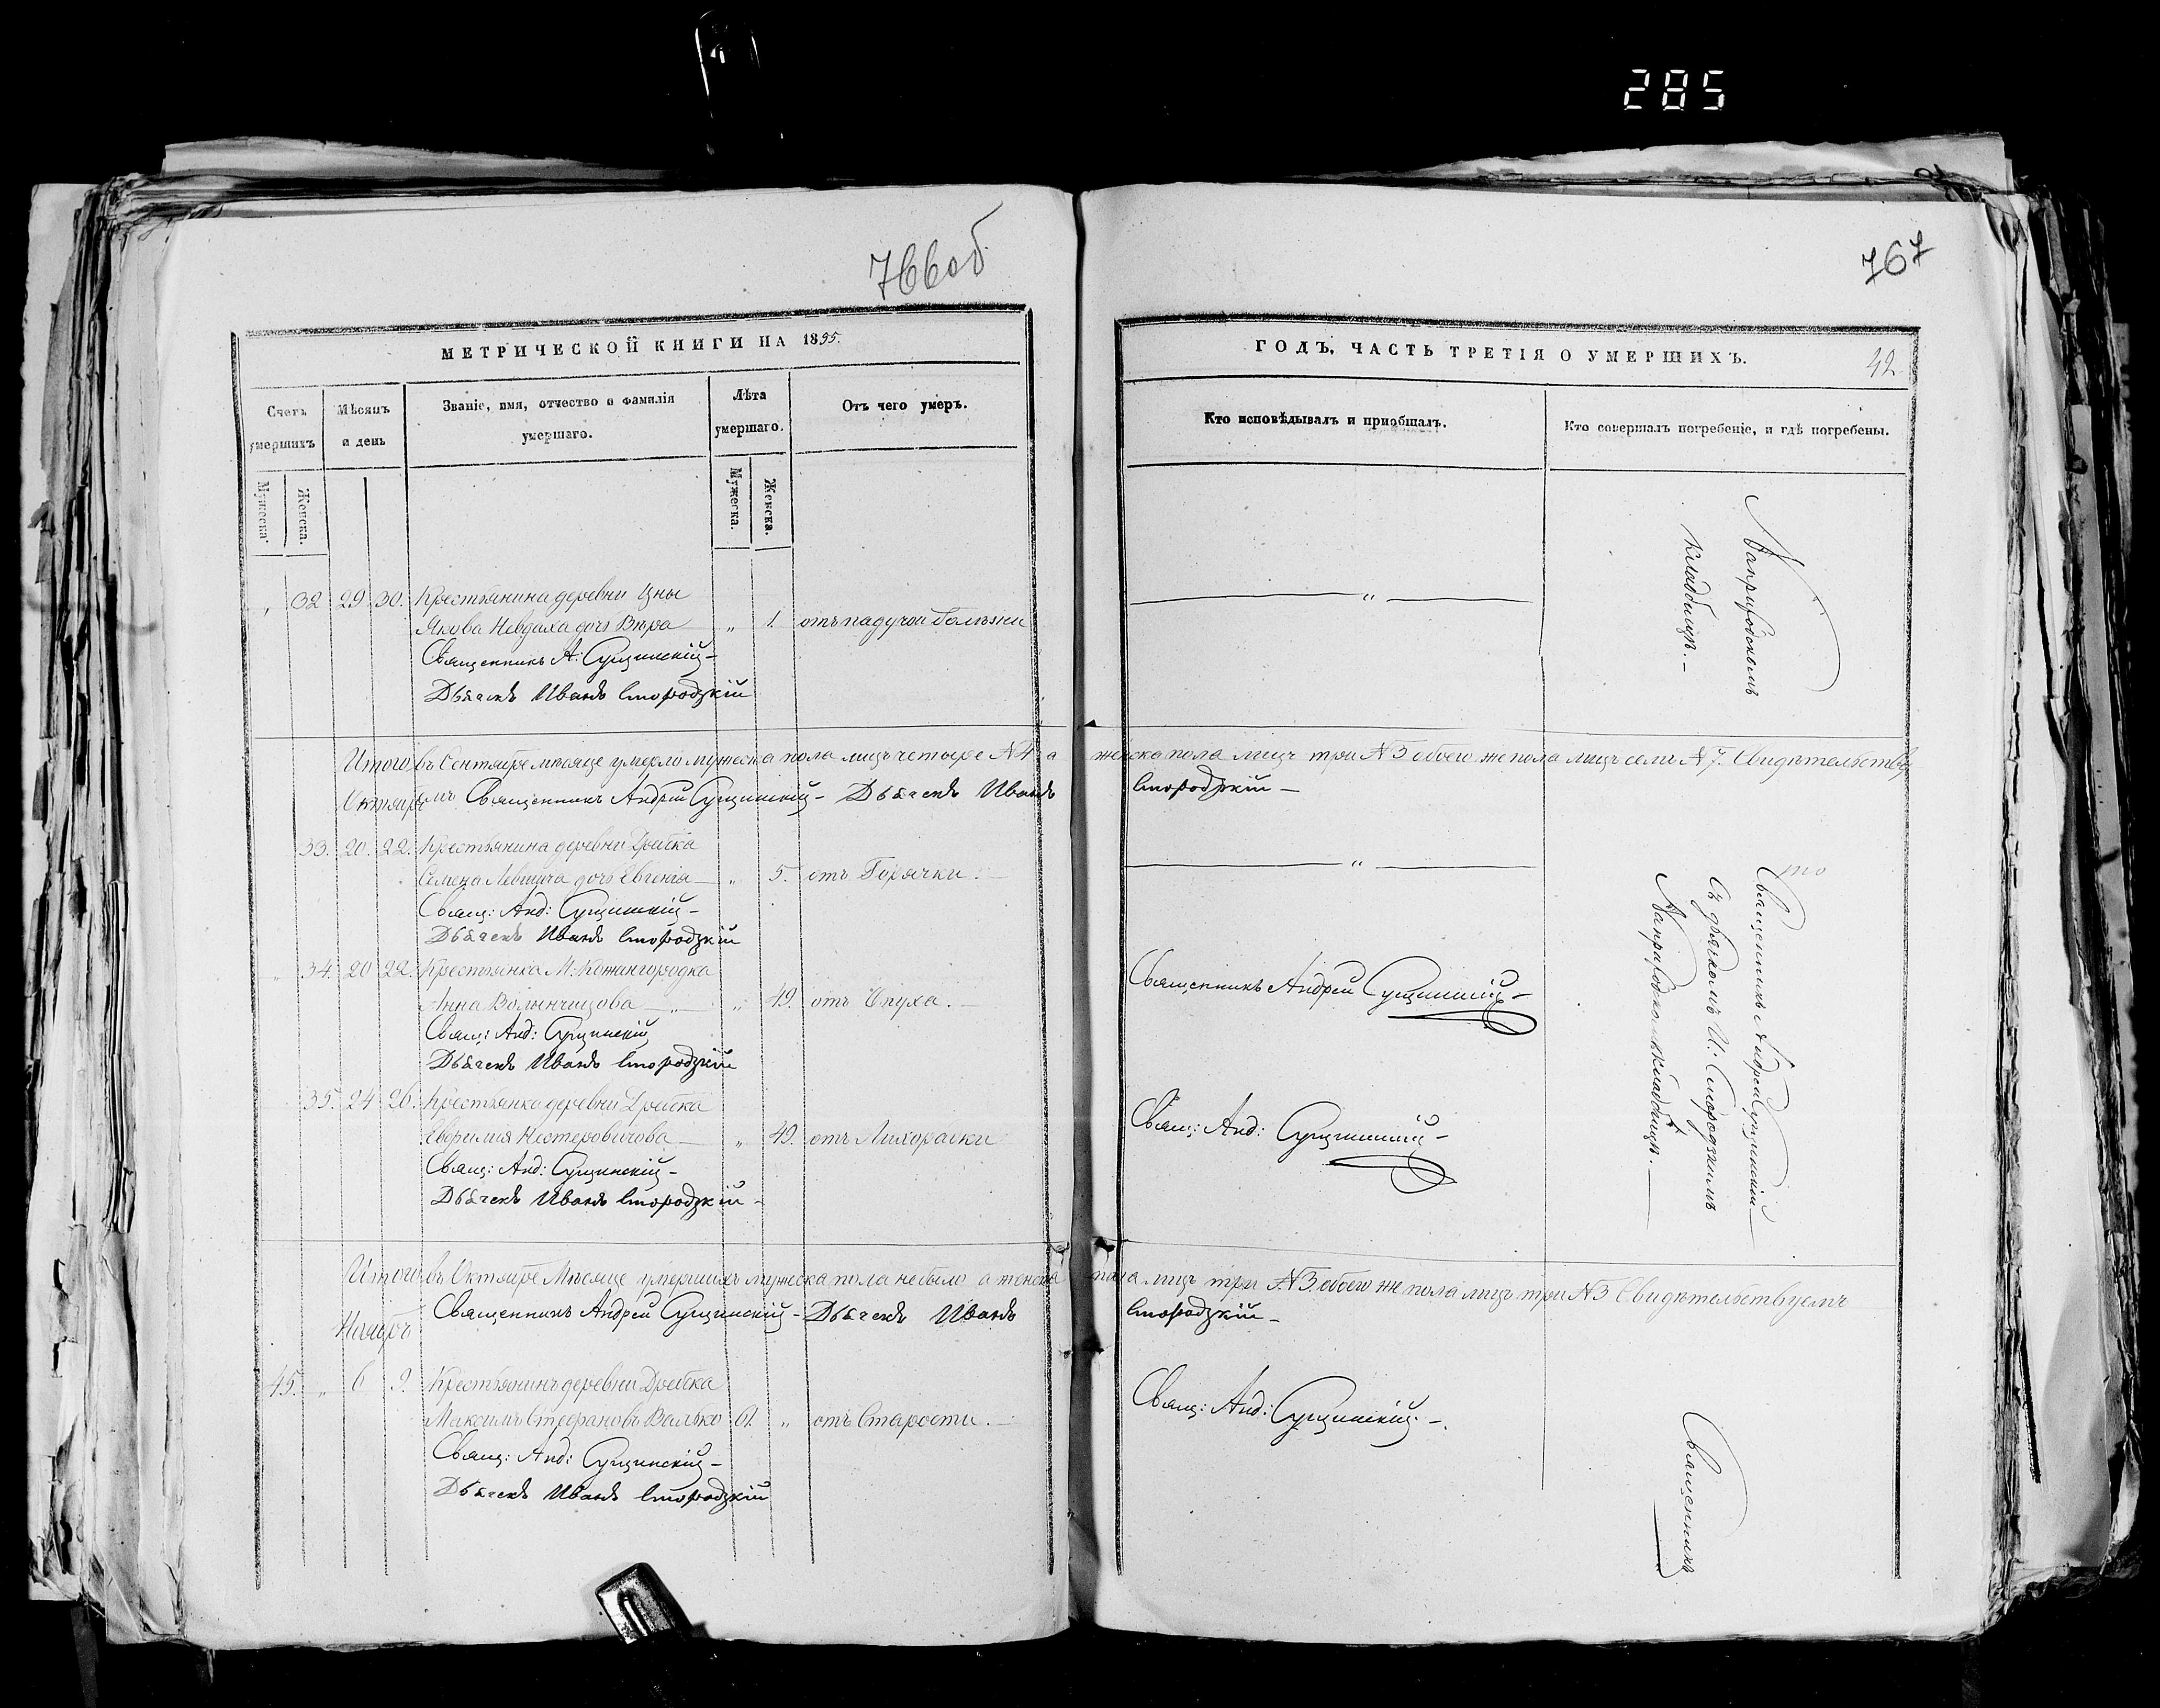 285
766об
767
МЕТРИЧЕСКОЙ КНИГИ НА 1895.
Счетъ умершихъ
Мѣсяцъ и день
Званіе, имя, отчество и фамилія умершаго.
Лѣта умершаго.
Отъ чего умеръ.
Мужеска.
Женска.
Мужеска.
Женска.
„ 32 29. 30. Крестьянина деревни Цны
Якова Невдаха дочь Вѣра „ 1. отъ падучой болѣзни
Священникъ А: Сущинскій –
Дьячекъ Иванъ Смородзкій
Итого въ Сентябре мѣсяце умерло мужеска пола лицъ четыре №4 а
Священникъ Андрей Сущинскій – Дьячекъ Иванъ
Октябрь
33. 20. 22. Крестьянина деревни Дребска
Семена Левшича дочь Евгенія – „ 5. отъ Горячки. –
Свящ: Анд: Сущинскій –
Дьячекъ Иванъ Смородзкій
„ 34. 20 22. Крестьянка М: Кожангородка
Анна „ 49. отъ Опуха. –
Свящ: Анд: Сущинскій
Дьячекъ Иванъ Смородзкій
35. 24 26. Крестьянка деревни Дребска
Нестеровичова – „ 49. отъ Лихорадки
Свящ: Анд: Сущинскій –
Дьячекъ Иванъ Смородзкій –
Итого въ Октябре Мѣсяце умершихъ мужеска пола небыло а женска
Священникъ Андрей Сущинскій – Дьячекъ Иванъ
Ноябрь
45. „ 6 9. Крестьянинъ деревни Дребска
Максимъ Стефановъ Валько 61. „ отъ Старости. –
Свящ: Анд: Сущинскій –
Дьячекъ Иванъ Смородзкій
ГОДЪ, ЧАСТЬ ТРЕТІЯ О УМЕРШИХЪ.
42
Кто исповѣдывалъ и пріобщалъ.
Кто совершалъ погребеніе, и гдѣ погребены.
„
На приходскомъ
кладбищѣ. –
женска пола лицъ три №3 обоего же пола лицъ семь №7. Свидѣтельству
Смородзкій –
„
Священникъ Андрей Сущинскій –
Съ дьячкомъ И: Смородзкимъ
На приходскомъ кладбищѣ. –
Священникъ Андрей Сущинскій –
Свящ: Анд: Сущинскій –
пола лицъ три №3. обоего же пола лицъ три №3 Свидѣтельствуемъ
Смородзкій –
Свящ: Анд: Сущинскій. –
Священникъ